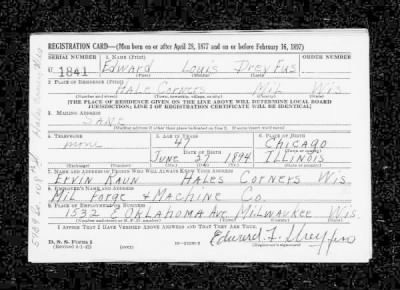 REGISTRATION CARD—(Men born on or after April 28, 1877 and on or before February 16, 1897)
SERIAL NUMBER 1. NAME (Print) ORDER NUMBER
U 1841 Edward Louis Dreyfus
(First) (Middle) (Last)
2. PLACE OF RESIDENCE (Print)
Hale Corners Mil Wis
(Number and street) (Town, township, village, or city) (County) (State)
[THE PLACE OF RESIDENCE GIVEN ON THE LINE ABOVE WILL DETERMINE LOCAL BOARD
JURISDICTION; LINE 2 OF REGISTRATION CERTIFICATE WILL BE IDENTICAL]
3. MAILING ADDRESS
SAME
[Mailing address if other than place indicated on line 2. If same insert word same]
4. TELEPHONE 5. AGE IN YEARS 6. PLACE OF BIRTH
none 47 Chicago
DATE OF BIRTH
June 27 1894 Illinois
(Exchange) (Number) (Mo.) (Day) (Yr.) (State or country)
7. NAME AND ADDRESS OF PERSON WHO WILL ALWAYS KNOW YOUR ADDRESS
Ervin Kaun Hales Corners Wis.
8. EMPLOYER'S NAME AND ADDRESS
Mil Forge & Machine Co.
9. PLACE OF EMPLOYMENT OR BUSINESS
1532 E Oklahoma Ave Milwaukee Wis.
(Number and street or R. F. D. number) (Town) (County) (State)
I AFFIRM THAT I HAVE VERIFIED ABOVE ANSWERS AND THAT THEY ARE TRUE.
D. S. S. Form 1
(Revised 4-1-42) (over)
(Registrant's signature)